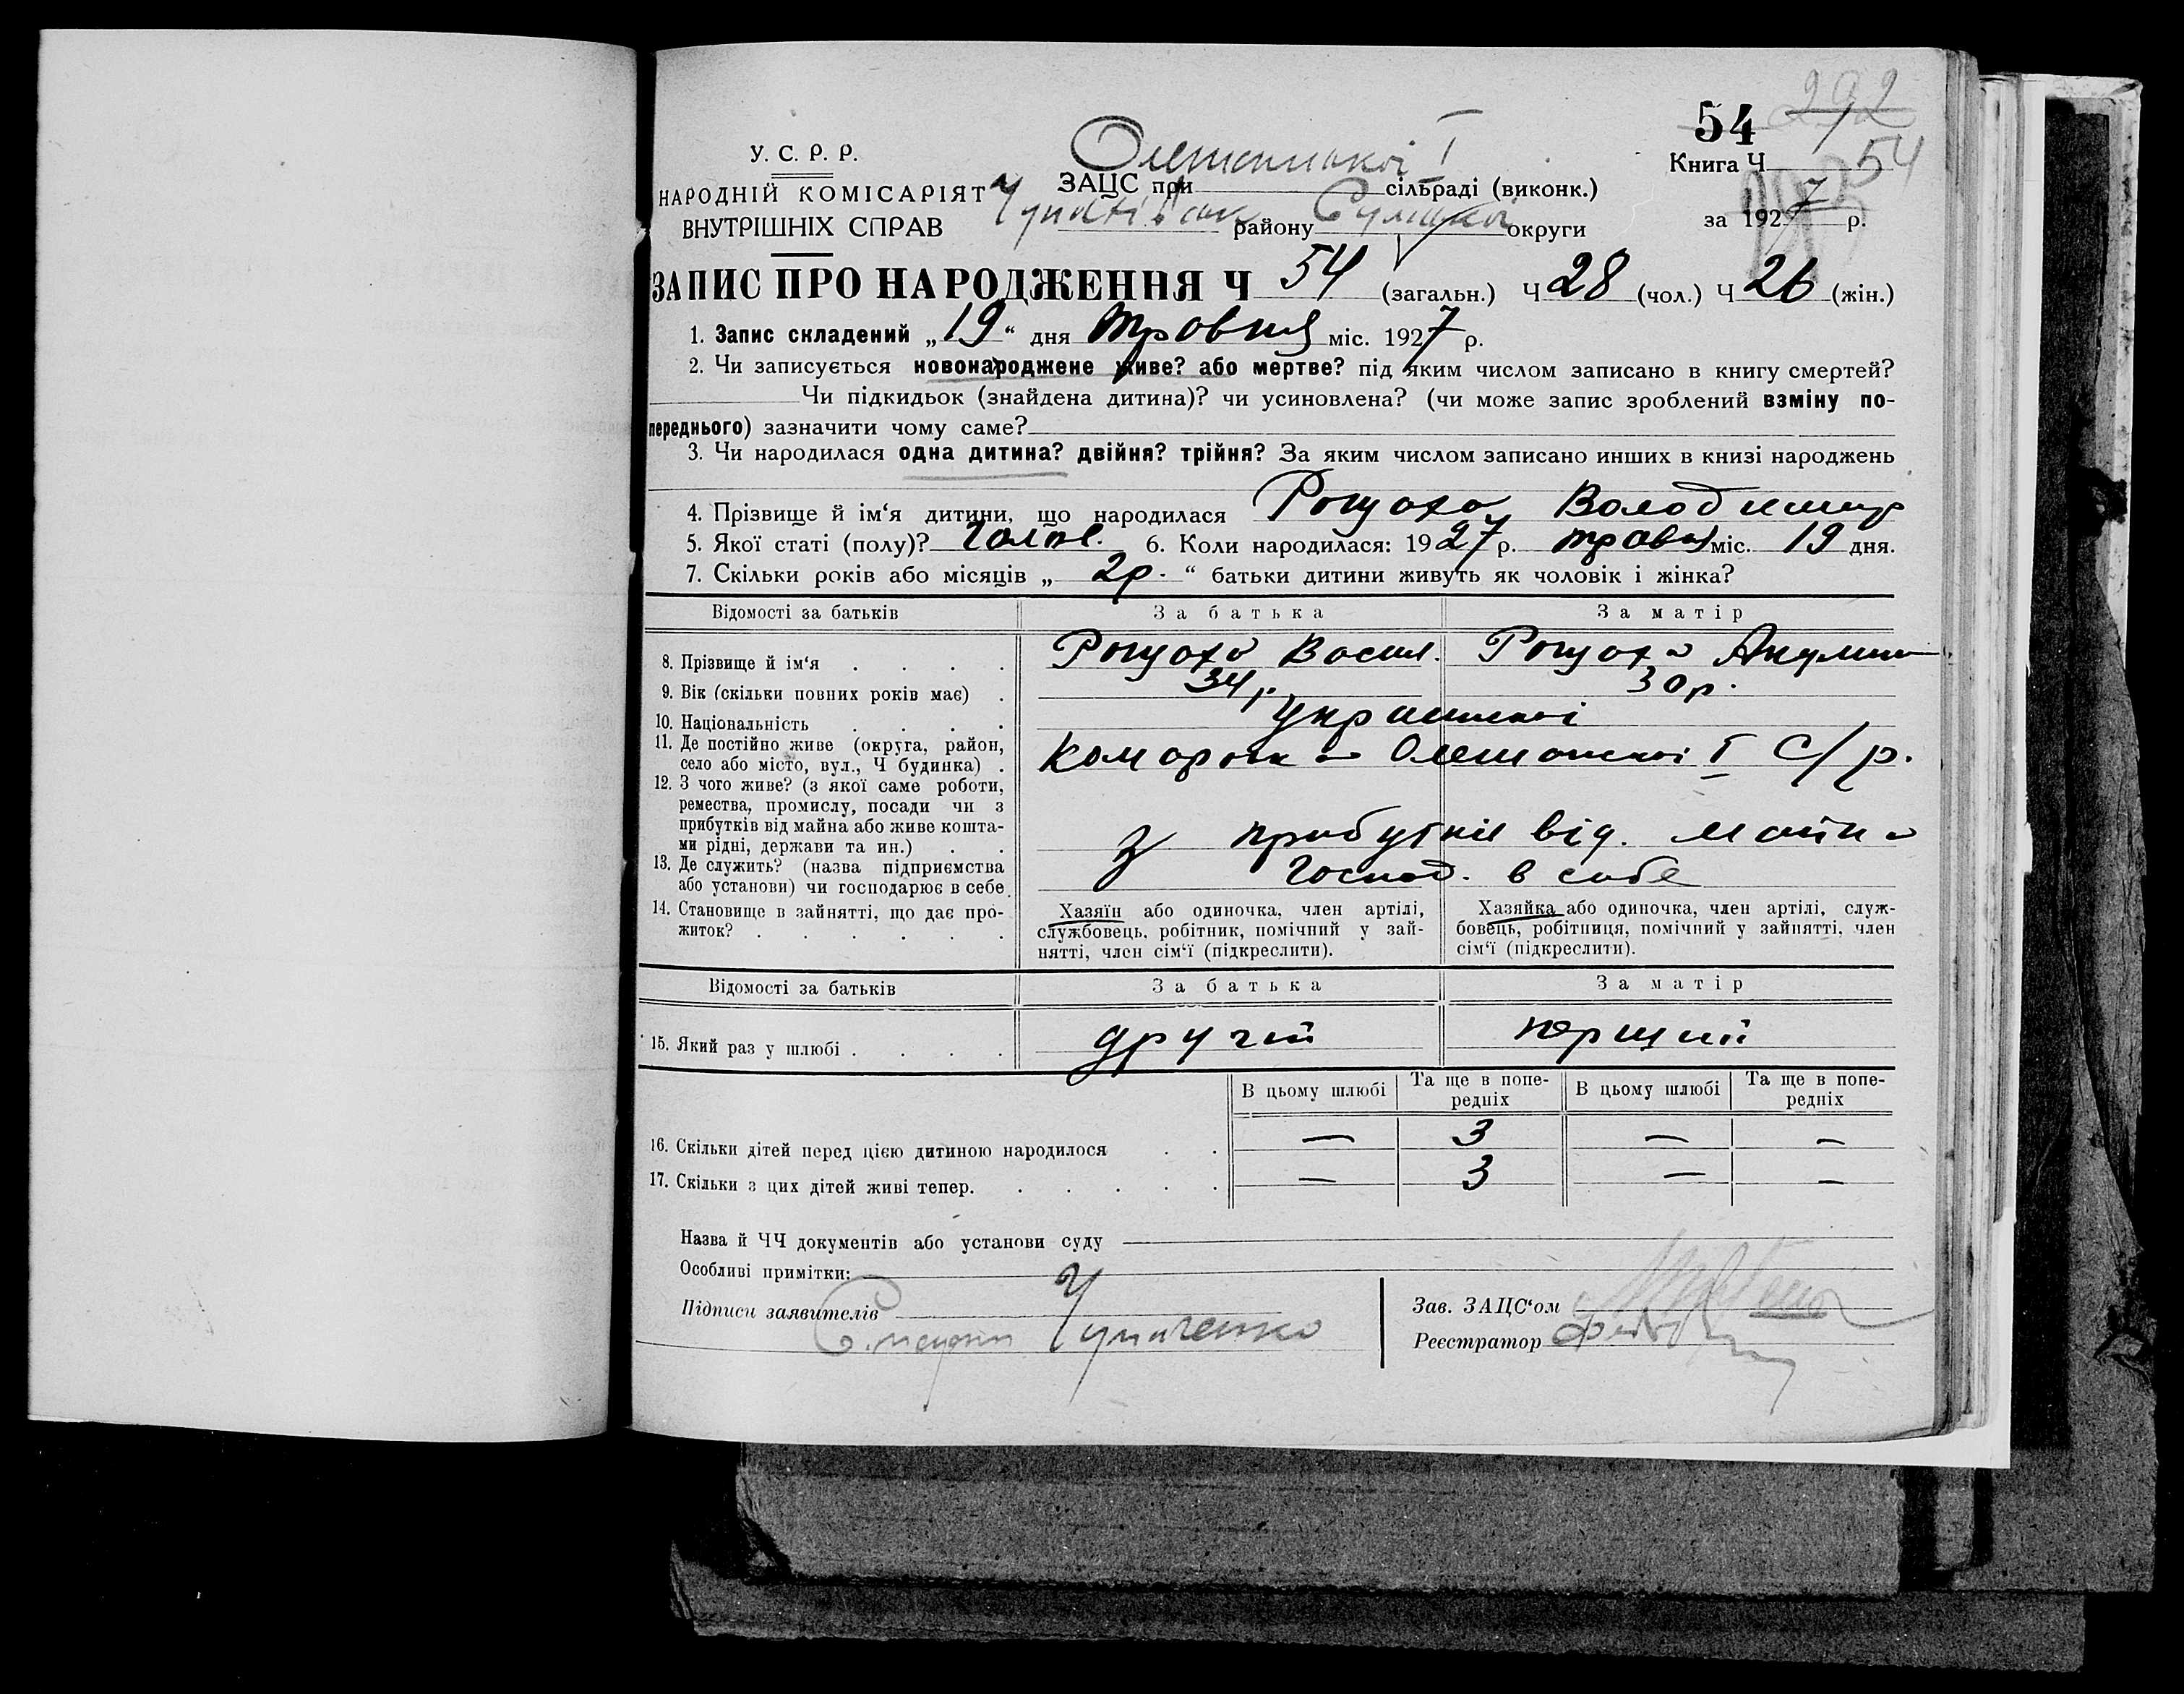 54 292
У. С. Р. Р.
НАРОДНІЙ КОМІСАРІЯТ
ВНУТРІШНІХ СПРАВ
ЗАЦС при І сільраді (виконк.)
району Сумської округи
Книга Ч 54
за 1927 р.
ЗАПИС ПРО НАРОДЖЕННЯ Ч 54 (загальн.) Ч 28 (чол.) Ч 26 (жін.)
1. Запис складений „19“ дня травня міс. 1927 р.
2. Чи записується новонароджене живе? або мертве? під яким числом записано в книгу смертей?
Чи підкидьок (знайдена дитина)? чи усиновлена? (чи може запис зроблений взміну по-
переднього) зазначити чому саме?
3. Чи народилася одна дитина? двійня? трійня? За яким числом записано инших в книзі народжень
4. Прізвище й ім‘я дитини, що народилася Володимир
5. Якої статі (полу)? 6. Коли народилася: 1927 р. травня міс. 19 дня.
7. Скільки років або місяців „ 2р. “ батьки дитини живуть як чоловік і жінка?
Відомості за батьків За батька За матір
8. Прізвище й ім‘я Васил.
9. Вік (скільки повних років має) 34р. 30р.
10. Національність української
11. Де постійно живе (округа, район,
село або місто, вул., Ч будинка) І с/р.
12. З чого живе? (з якої саме роботи,
ремества, промислу, посади чи з
прибутків від майна або живе кошта-
ми рідні, держави та ин.) З прибутків від. майна
13. Де служить? (назва підприємства
або установи) чи господарює в себе Господ. в себе
14. Становище в зайнятті, що дає про-
житок?
Хазяїн або одиночка, член артілі,
службовець, робітник, помічний у зай-
нятті, член сім‘ї (підкреслити).
Хазяйка або одиночка, член артілі, служ-
бовець, робітниця, помічний у зайнятті, член
сім‘ї (підкреслити).
Відомості за батьків За батька За матір
15. Який раз у шлюбі другий перший
В цьому шлюбі Та ще в попе-
редніх В цьому шлюбі Та ще в попе-
редніх
16. Скільки дітей перед цією дитиною народилося — 3 — —
17. Скільки з цих дітей живі тепер. — 3 — —
Назва й ЧЧ документів або установи суду
Особливі примітки:
Підписи заявителів
Зав. ЗАЦС‘ом
Реєстратор